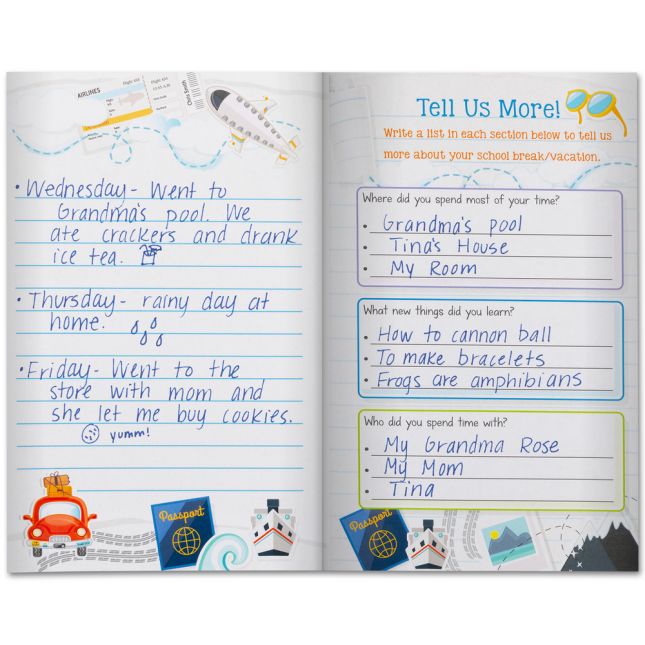 AIRLINES
Chris Smith
• Wednesday - Went to
Grandma's pool. We
ate crackers and drank
ice tea.
• Thursday - rainy day at
home.
• Friday - Went to the
store with mom and
she let me buy cookies.
yumm!
Passport
Tell Us More!
Write a list in each section below to tell us
more about your school break/vacation.
Where did you spend most of your time?
• Grandma's pool
• Tina's House
• My Room
What new things did you learn?
• How to cannon ball
• To make bracelets
• Frogs are amphibians
Who did you spend time with?
• My Grandma Rose
• My Mom
• Tina
Passport